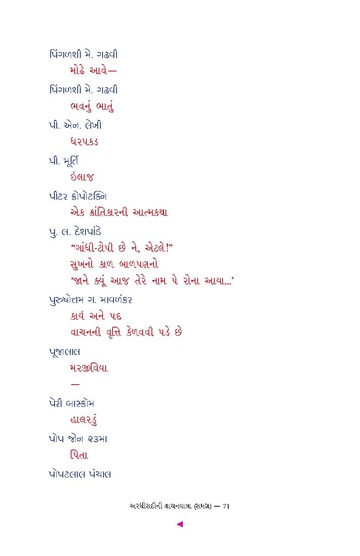 પિંગળશી મે. ગઢવી
મોઢે આવે—
પિંગળશી મે. ગઢવી
ભવનું ભાતું
પી. એન. લેખી
ધરપકડ
પી. મૂર્તિ
ઇલાજ
પીટર ક્રોપોટક્નિ
એક ક્રાંતિકારની આત્મકથા
પુ. લ. દેશપાંડે
“ગાંધી-ટોપી છે ને, એટલે!”
સુખનો કાળ બાળપણનો
‘જાને ક્યૂં આજ તેરે નામ પે રોના આયા...’
પુરુષોત્તમ ગ. માવળંકર
કાર્ય અને પદ
વાચનની વૃત્તિ કેળવવી પડે છે
પૂજાલાલ
મરજીવિયા
—
પેરી બાસ્કોમ
હાલરડું
પોપ જોન ૨૩મા
પિતા
પોપટલાલ પંચાલ
અરધીસદીની વાચનયાત્રા (સમગ્ર) — 71